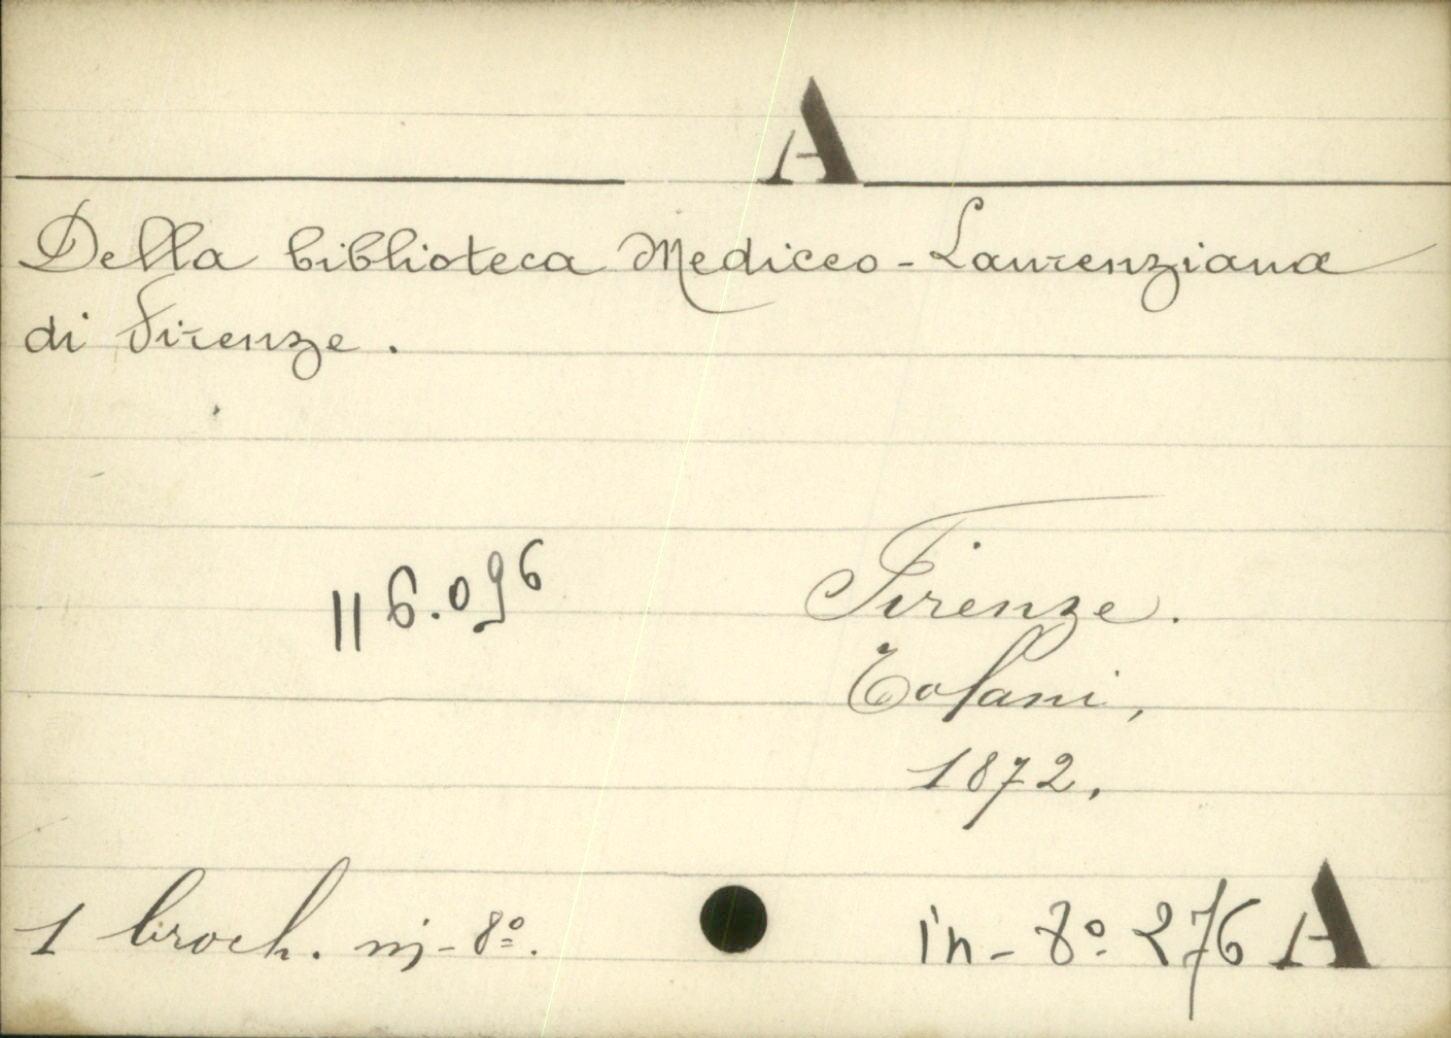 A
Della biblioteca Mediceo-Laurenziana
di Firenze.
116.096
Firenze.
Tofani,
1872.
1 broch. in-8º.
in-8º 276 A